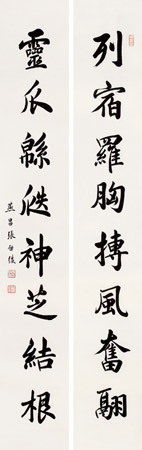 列宿羅胸搏風奮翮
靈瓜緜瓞神芝結根
燕昌張伯俊